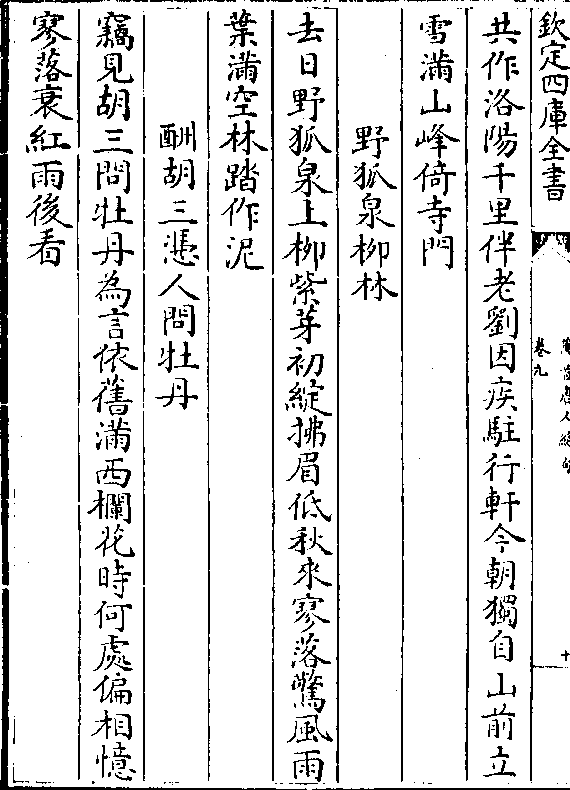 欽定四庫全書
萬首唐人絶句
卷九
十
共作洛陽千里伴老劉因疾駐行軒今朝獨自山前立
雪滿山峰倚寺門
野狐泉柳林
去日野狐泉上柳紫芽初綻拂眉低秋來寥落驚風雨
葉滿空林踏作泥
酬胡三慿人問牡丹
竊見胡三問牡丹為言依舊滿西欄花時何處偏相憶
寥落衰紅雨後看